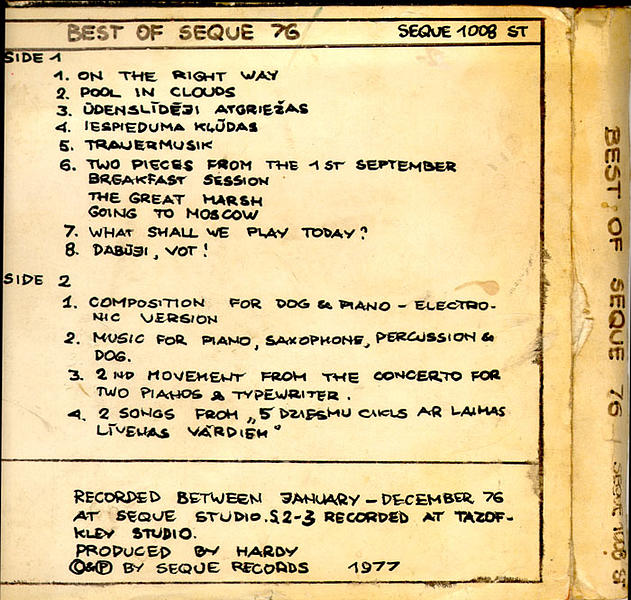 BEST OF SEQUE 76
SEQUE 1008 ST
SIDE 1
1. ON THE RIGHT WAY
2. POOL IN CLOUDS
3. ŪDENSLĪDĒJI ATGRIEŽAS
4. IESPIEDUMA KĻŪDAS
5. TRAUERMUSIK
6. TWO PIECES FROM THE 1ST SEPTEMBER
BREAKFAST SESSION
THE GREAT MARSH
GOING TO MOSCOW
7. WHAT SHALL WE PLAY TODAY?
8. DABŪJI, VOT!
SIDE 2
1. COMPOSITION FOR DOG & PIANO – ELECTRO-
NIC VERSION
2. MUSIC FOR PIANO, SAXOPHONE, PERCUSSION &
DOG.
3. 2ND MOVEMENT FROM THE CONCERTO FOR
TWO PIANOS & TYPEWRITER.
4. 2 SONGS FROM „5 DZIESMU CIKLS AR LAIMAS
LĪVENAS VĀRDIEM"
RECORDED BETWEEN JANUARY – DECEMBER 76
AT SEQUE STUDIO. S.2-3 RECORDED AT TAZOF-
KLEY STUDIO.
PRODUCED BY HARDY
©&℗ BY SEQUE RECORDS 1977
BEST OF SEQUE 76 SEQUE 1008 ST